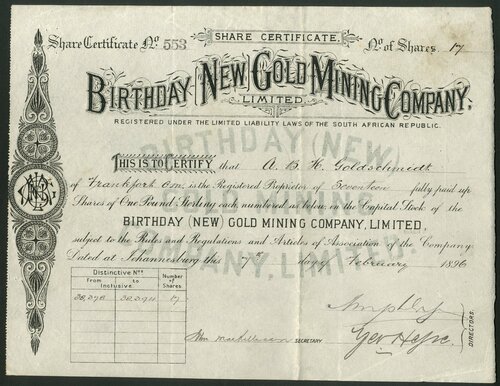 SHARE CERTIFICATE.
Share Certificate No. 553 No. of Shares 17
BIRTHDAY NEW GOLD MINING COMPANY,
LIMITED.
REGISTERED UNDER THE LIMITED LIABILITY LAWS OF THE SOUTH AFRICAN REPUBLIC.
THIS IS TO CERTIFY that A. B. H. Goldschmidt
of Frankfort o/m, is the Registered Proprietor of Seventeen fully paid up
Shares of One Pound Sterling each, numbered as below, in the Capital Stock of the
BIRTHDAY (NEW) GOLD MINING COMPANY, LIMITED,
subject to the Rules and Regulations and Articles of Association of the Company.
Dated at Johannesburg this 7th day of February 1896
Distinctive Nos. Number of Shares
From to
Inclusive
17
SECRETARY
DIRECTORS.
BIRTHDAY (NEW)
GOLD MINING
COMPANY, LIMITED.